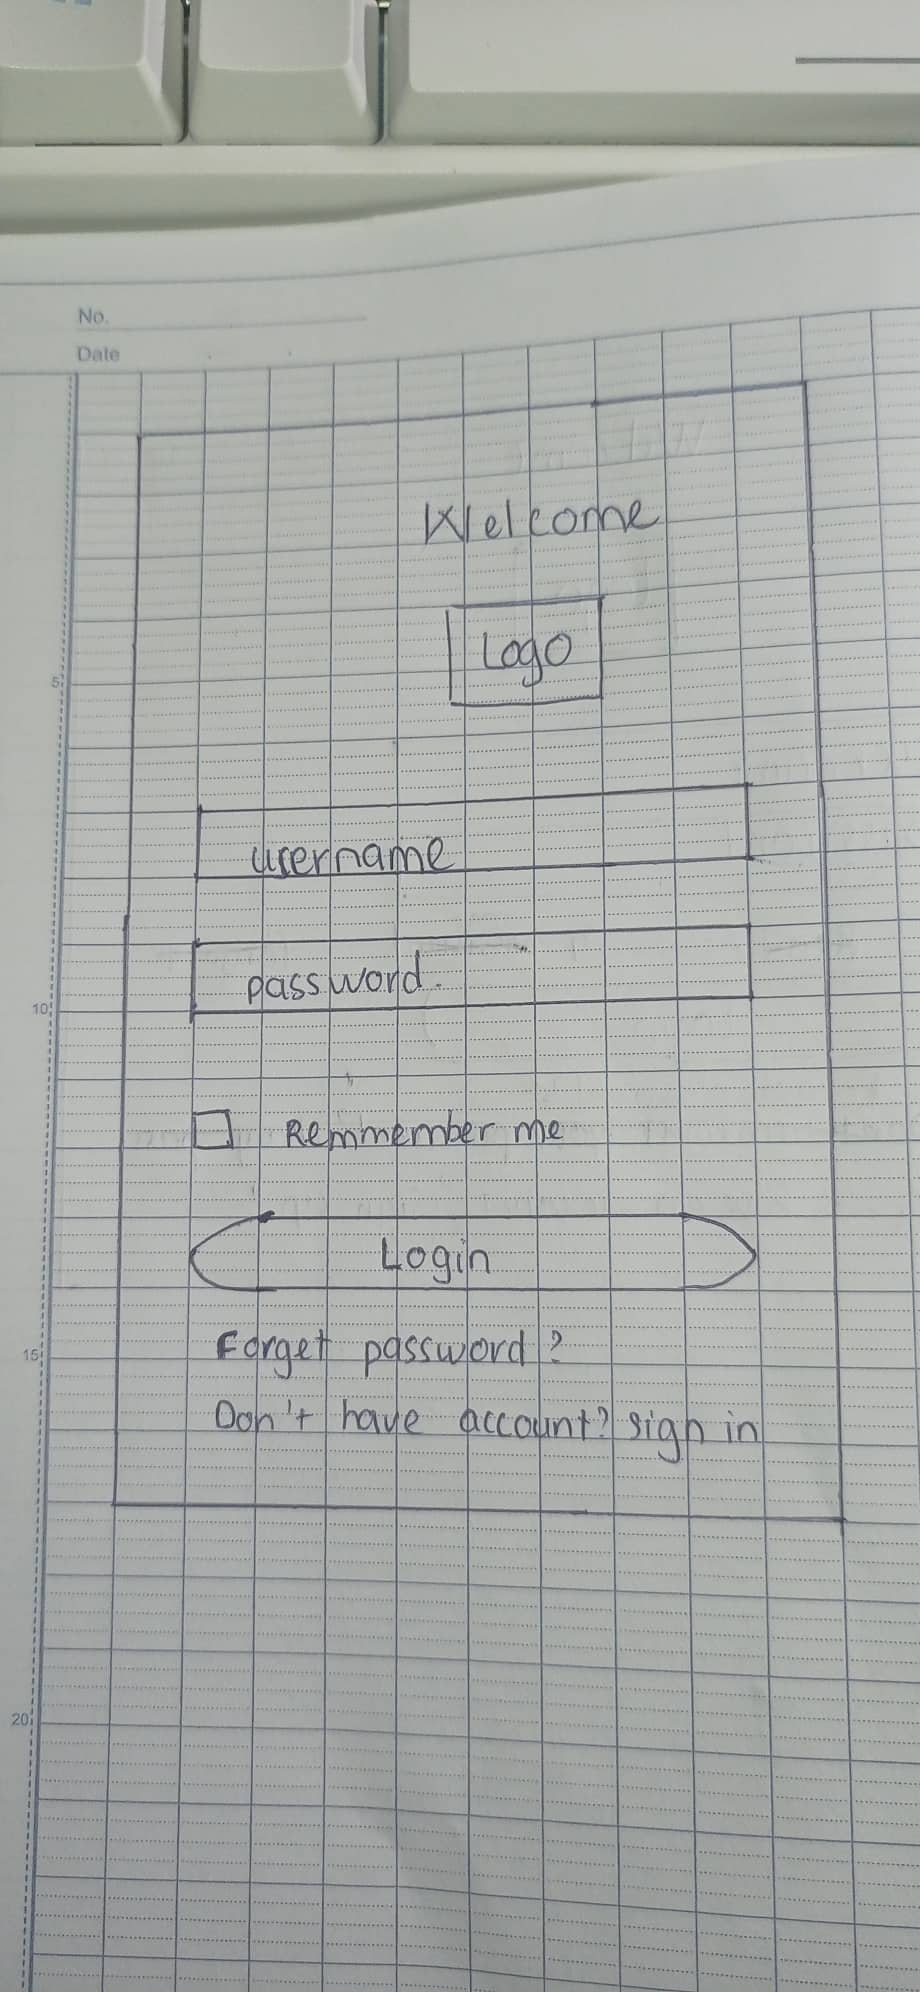 No.
Date
Welcome
Logo
5
username
password.
10
Remmember me
Login
15
Forget password?
Don't have account? sign in
20